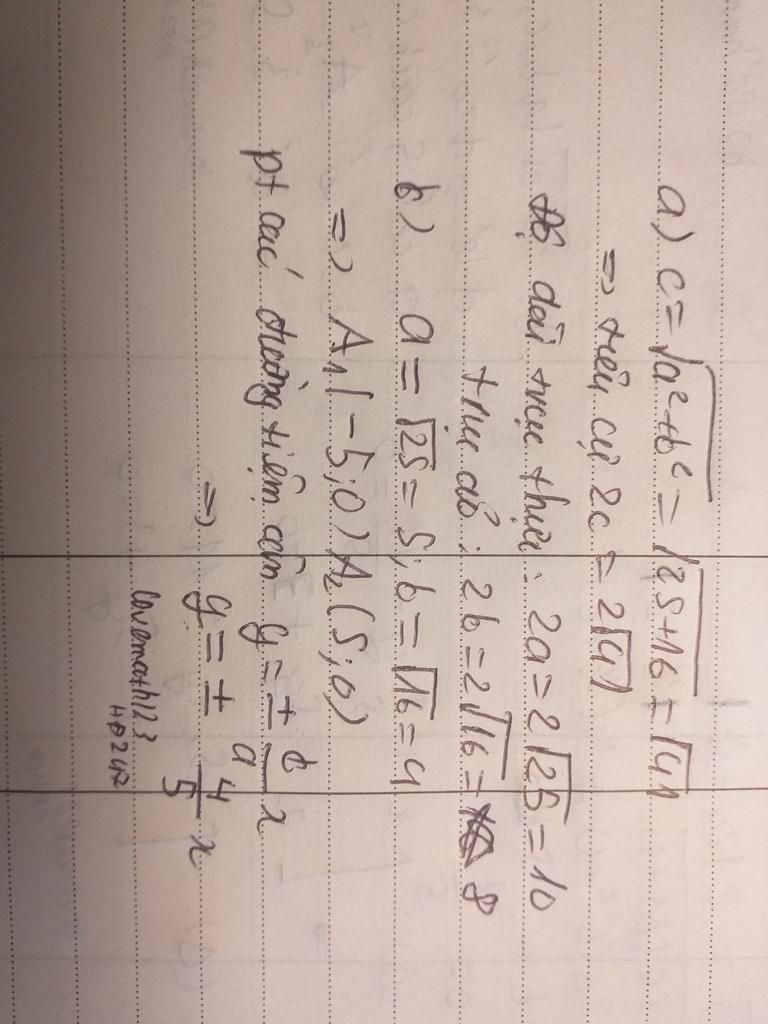 a) c = √a²+b² = √25+16 = √41
=> tiêu cự 2c = 2√41
Độ dài trục thực: 2a = 2√25 = 10
trục ảo: 2b = 2√16 = 8
b) a = √25 = 5; b = √16 = 4
=> A₁(-5;0) A₂(5;0)
pt các đường tiệm cận y = ± b/a x
=> y = ± 4/5 x
lovemath123